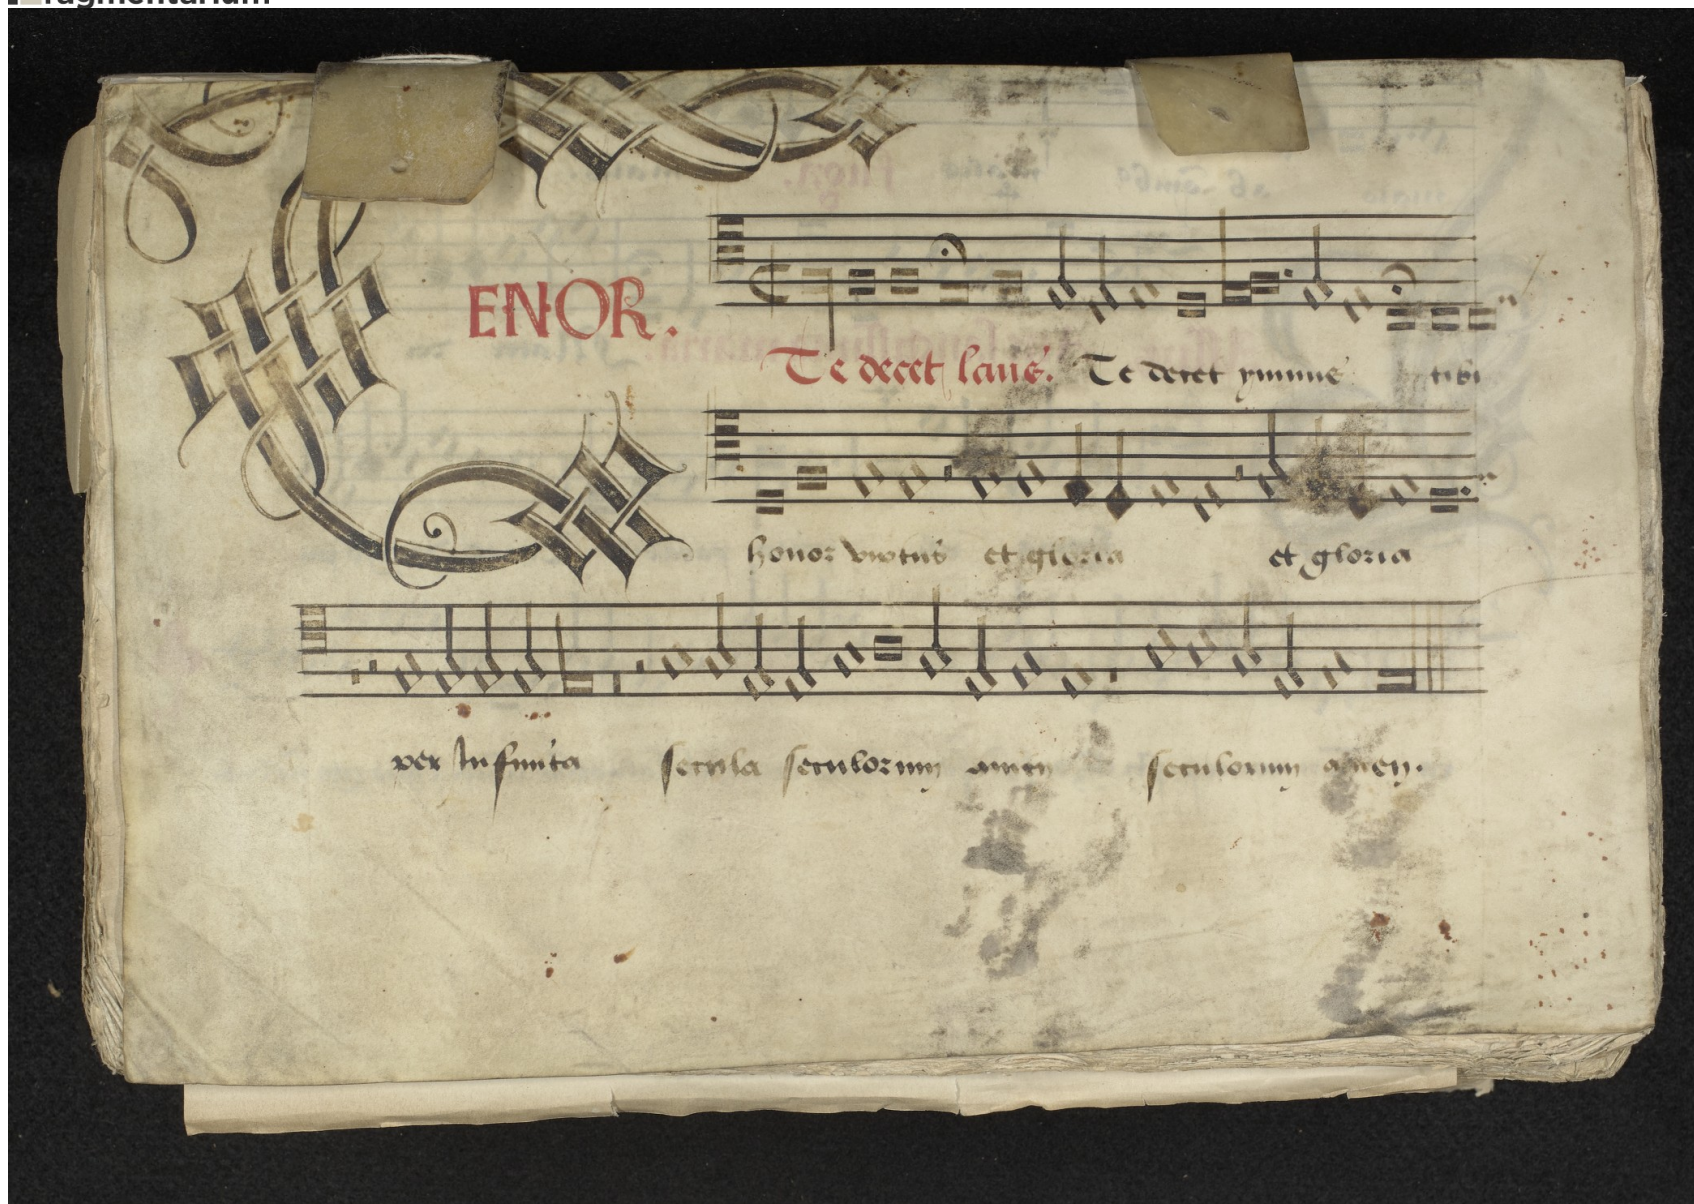 fragmentarium
TENOR.
Te decet laus. Te decet ymnus tibi
honor virtus et gloria et gloria
per Infinita secula seculorum amen seculorum amen.